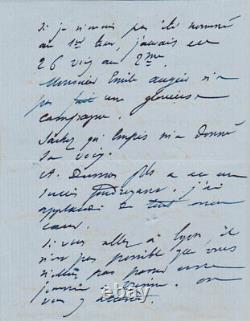 si je n'avais pas été nommé
au 1er tour, j'avais eu
26 voix au 2me.
Monsieur Emile Augier n'a
pas fait une glorieuse
campagne.
Sachez qu' m'a donné
sa voix.
A. Dumas fils a eu un
succès. j'ai
applaudi de tout mon
cœur.
Si vous allez à Lyon, il
n'est pas possible que vous
n'alliez pas passer une
journée à Vienne. on
vous y attend.